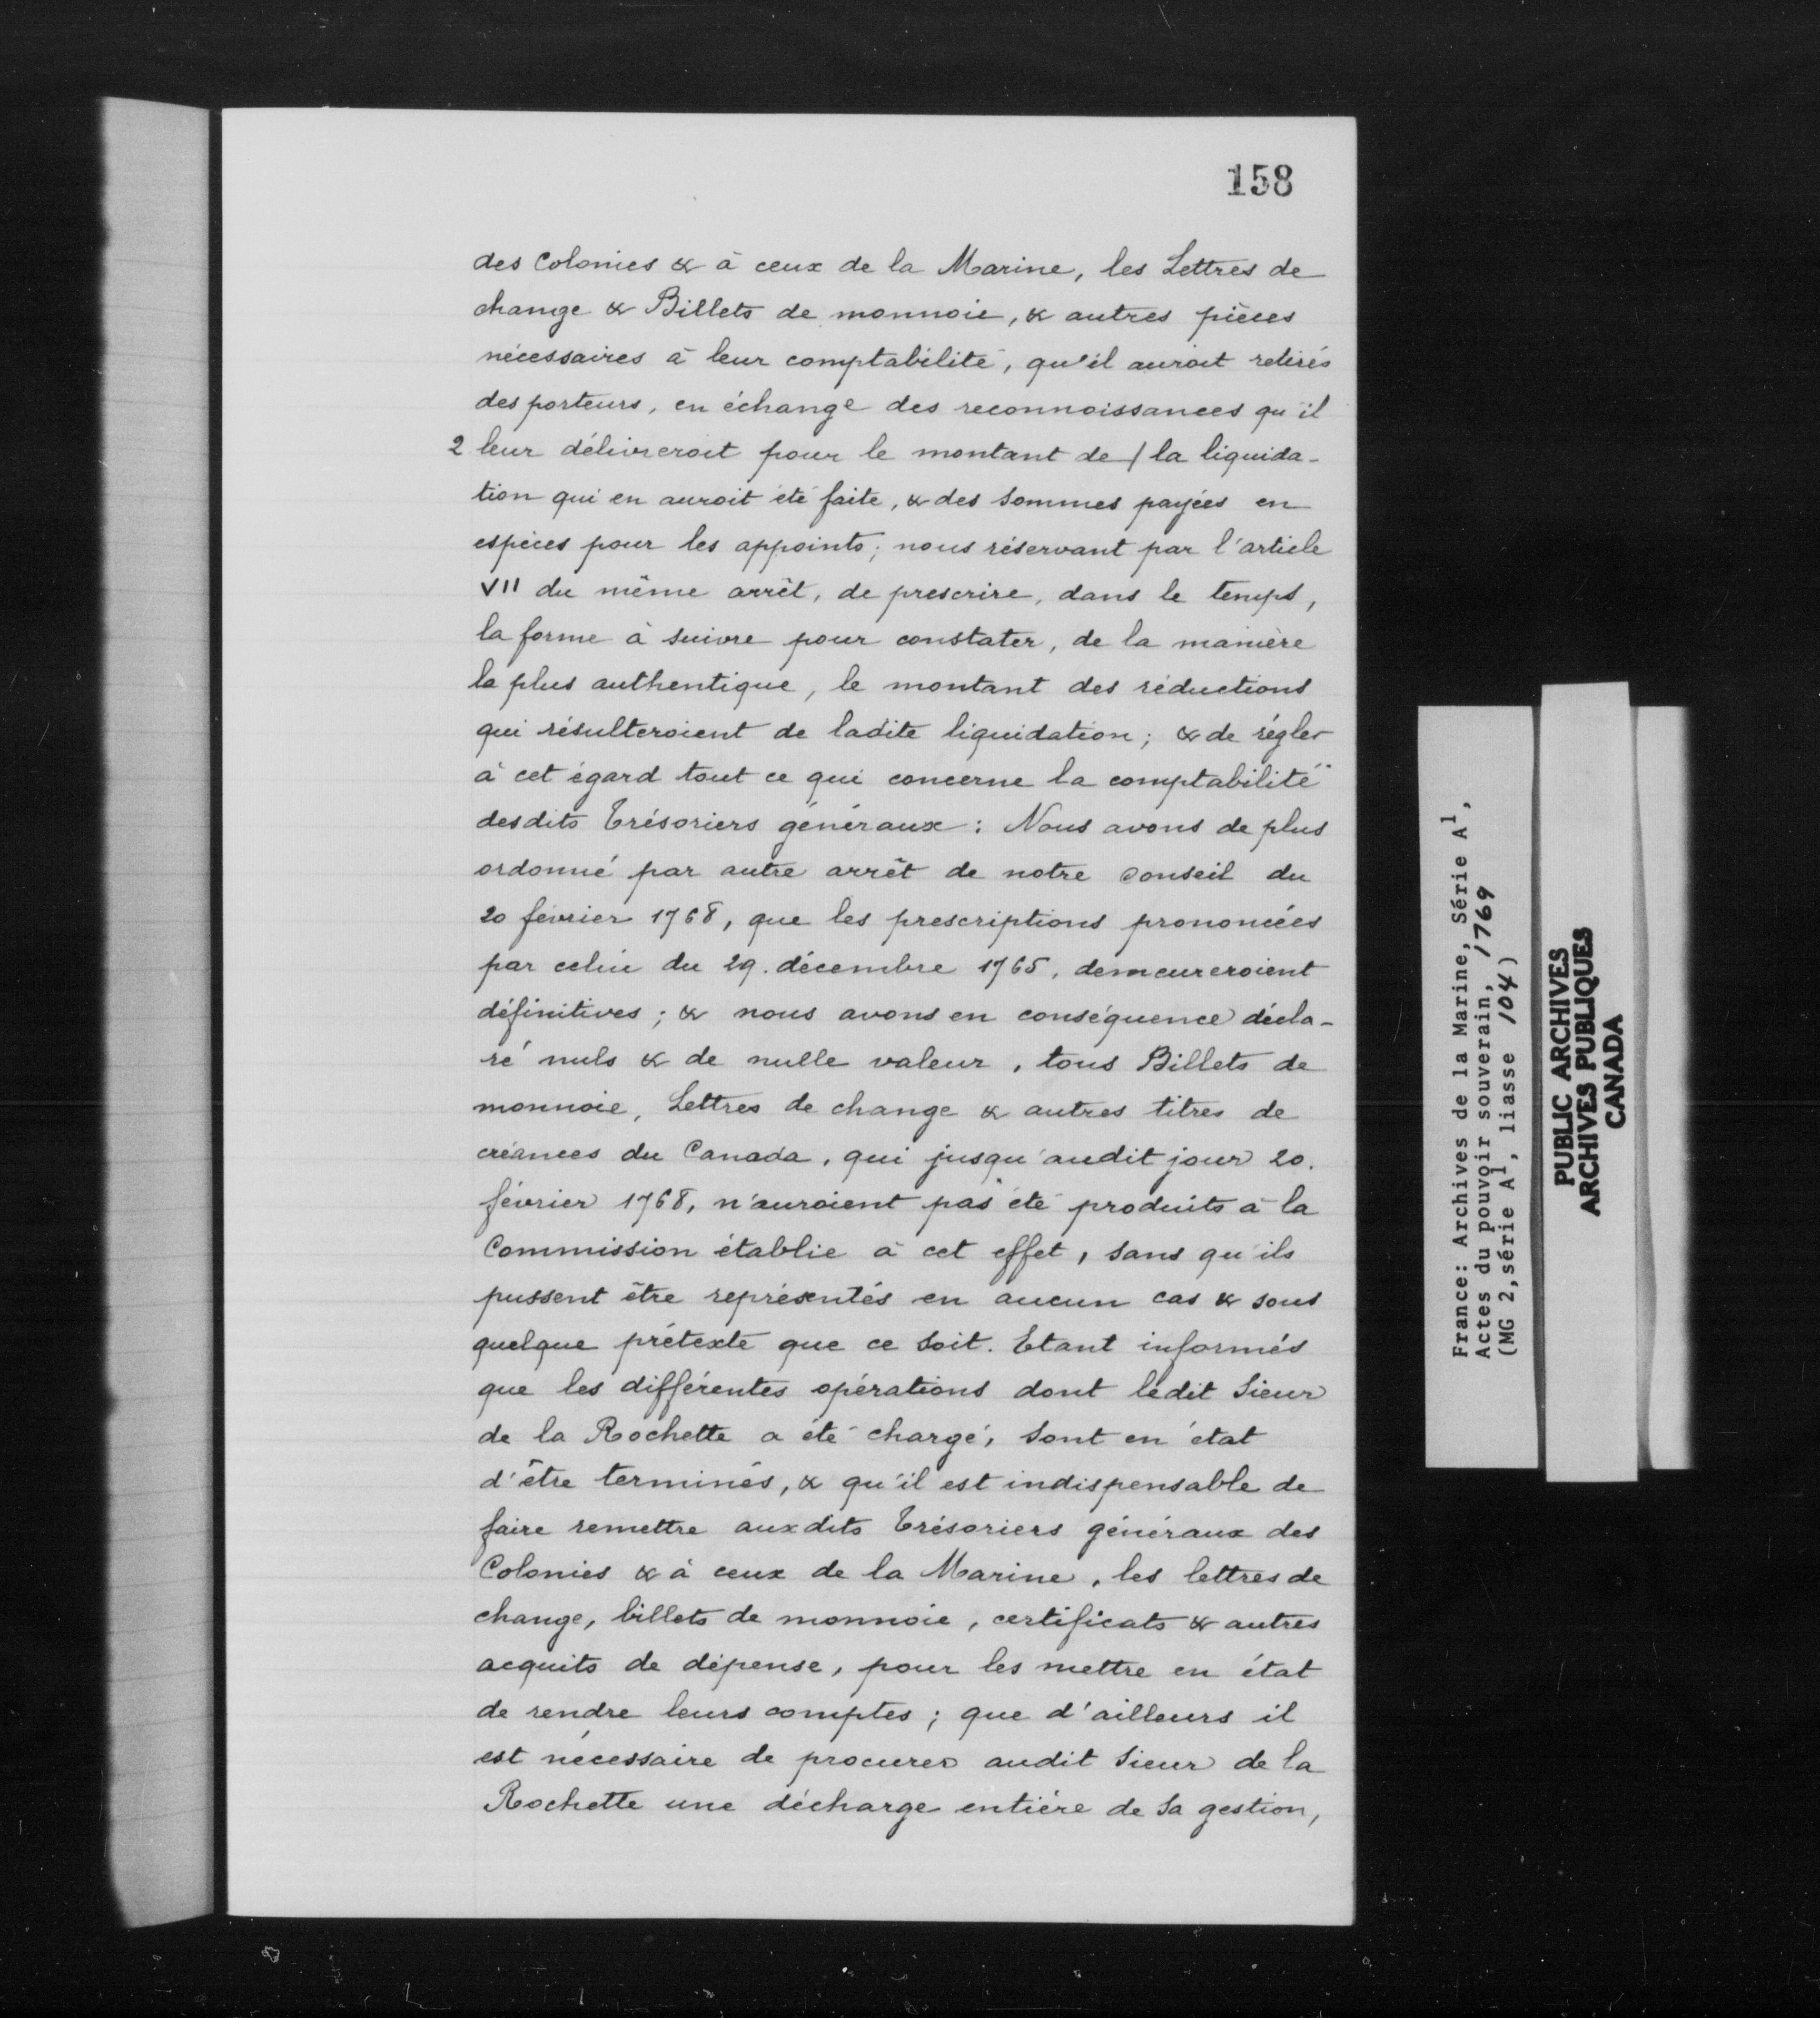 158
des Colonies & à ceux de la Marine, les Lettres de
change & Billets de monnoie, & autres pièces
nécessaires à leur comptabilité, qu'il auroit retirés
des porteurs, en échange des reconnoissances qu'il
2 leur délivreroit pour le montant de / la liquida-
tion qui en auroit été faite, & des sommes payées en
espèces pour les appoints; nous réservant par l'article
VII du même arrêt, de prescrire, dans le temps,
la forme à suivre pour constater, de la manière
la plus authentique, le montant des réductions
qui résulteroient de ladite liquidation; & de régler
à cet égard tout ce qui concerne la comptabilité
desdits Trésoriers généraux: Nous avons de plus
ordonné par autre arrêt de notre Conseil du
20 février 1768, que les prescriptions prononcées
par celui du 29. décembre 1765, demeureroient
définitives; & nous avons en conséquence décla-
ré nuls & de nulle valeur, tous Billets de
monnoie, Lettres de change & autres titres de
créances du Canada, qui jusqu'audit jour 20.
février 1768, n'auroient pas été produits à la
Commission établie à cet effet, sans qu'ils
pussent être représentés en aucun cas & sous
quelque prétexte que ce soit. Etant informés
que les différentes opérations dont ledit Sieur
de la Rochette a été chargé, sont en état
d'être terminés, & qu'il est indispensable de
faire remettre auxdits Trésoriers généraux des
Colonies & à ceux de la Marine, les lettres de
change, billets de monnoie, certificats & autres
acquits de dépense, pour les mettre en état
de rendre leurs comptes; que d'ailleurs il
est nécessaire de procurer audit Sieur de la
Rochette une décharge entière de sa gestion,
France: Archives de la Marine, Série A1,
Actes du pouvoir souverain, 1769
(MG 2, série A1, liasse 104)
PUBLIC ARCHIVES
ARCHIVES PUBLIQUES
CANADA